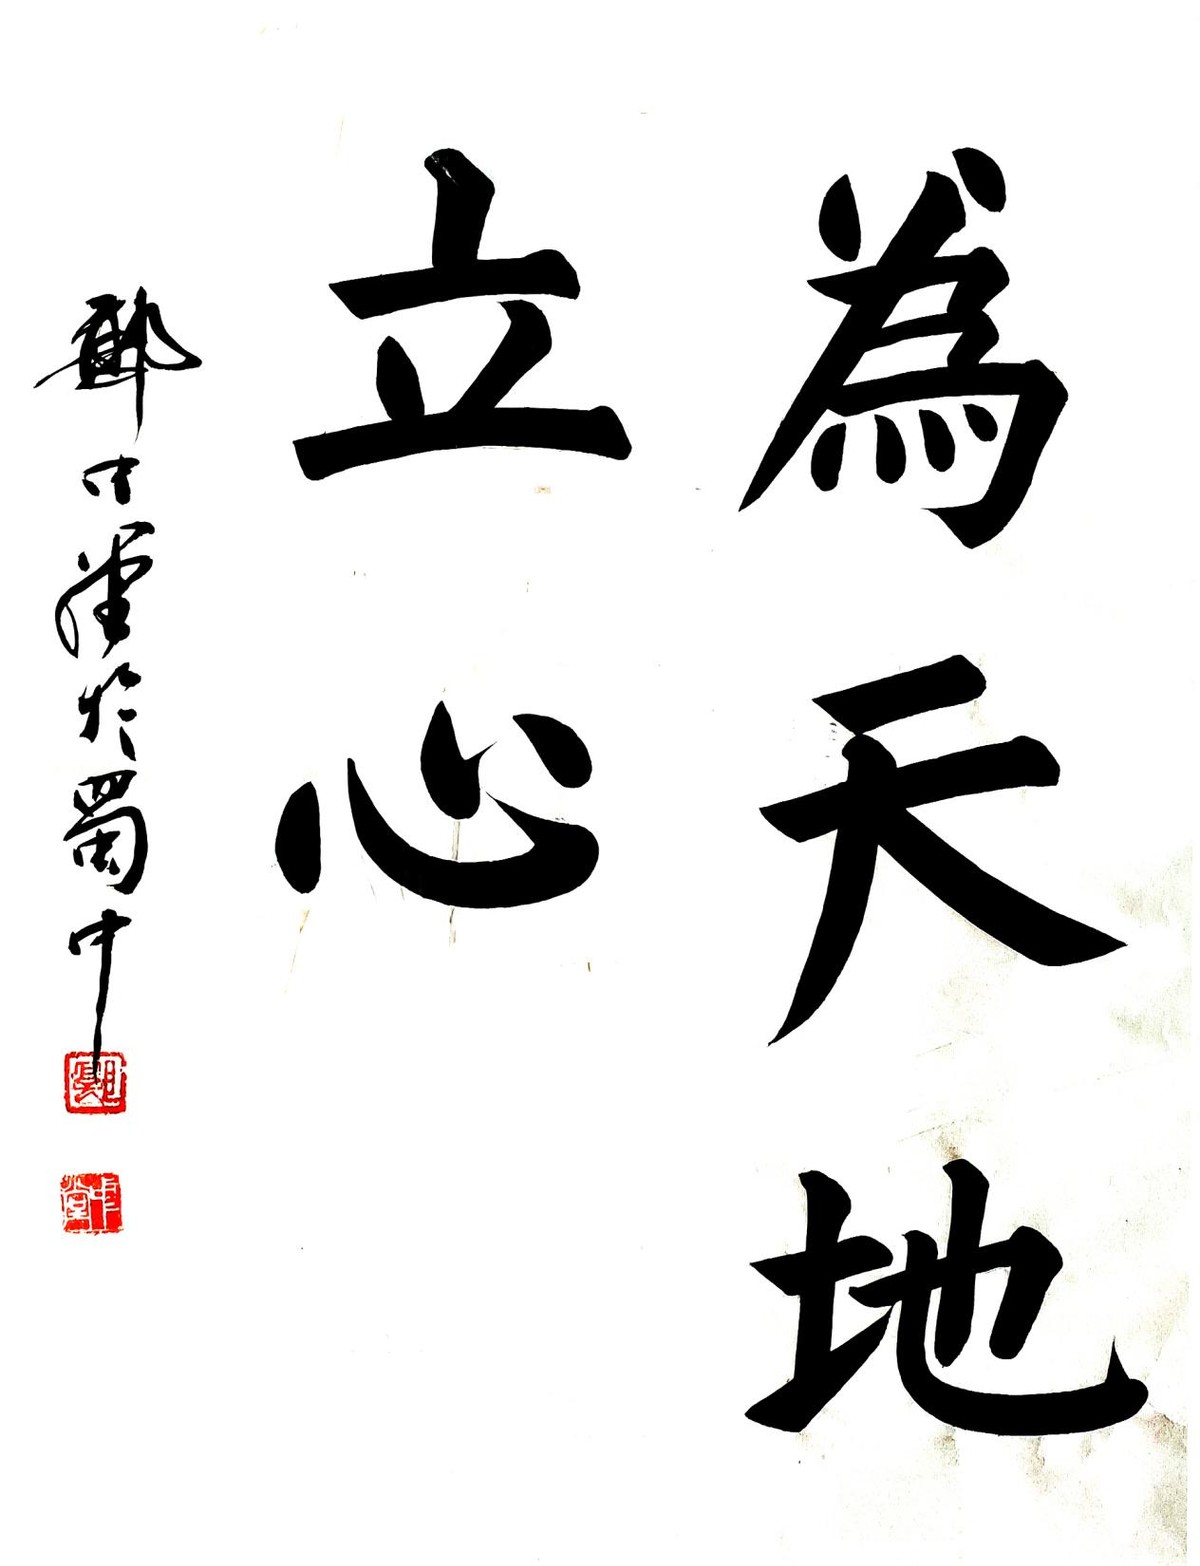 為天地
立心
鄭中堂於蜀中